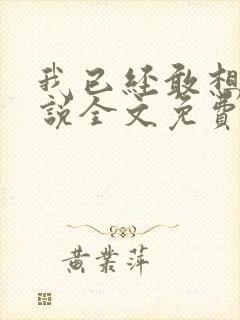 我已经敢想
说全文免费
黄业萍